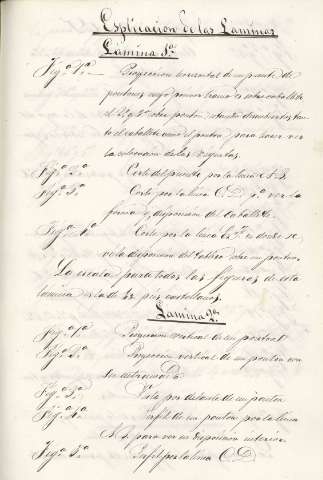 Esplicacion de las Laminas
Lámina 1ª
Figª 1ª Proyeccion horizontal de un puente de
pontones cuyo primer tramo es sobre caballete
el 2º y 3º sobre ponton, estando descubiertos tan-
to el caballete como el ponton, para hacer ver
la colocacion de las viguetas.
Figª 2ª Corte del puente por la linea A.B.
Figª 3ª Corte por la linea C.D. pª ver la
forma y disposicion del caballete.
Figª 4ª Corte por la linea en donde se
ve la disposicion del tablero sobre un ponton.
La escala para todas las figuras de esta
lamina es la de pies castellanos.
Lamina 2ª
Figª 1ª Proyeccion vertical de un ponton
Figª 2ª Proyeccion vertical de un ponton con
su
Figª 3ª Vista por delante de un ponton
Figª 4ª Perfil de un ponton por la linea
A.B. para ver su disposicion interior.
Figª 5ª Perfil por la linea C.D.